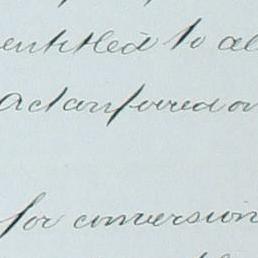 entitled to al
Act conferred on
for conversion